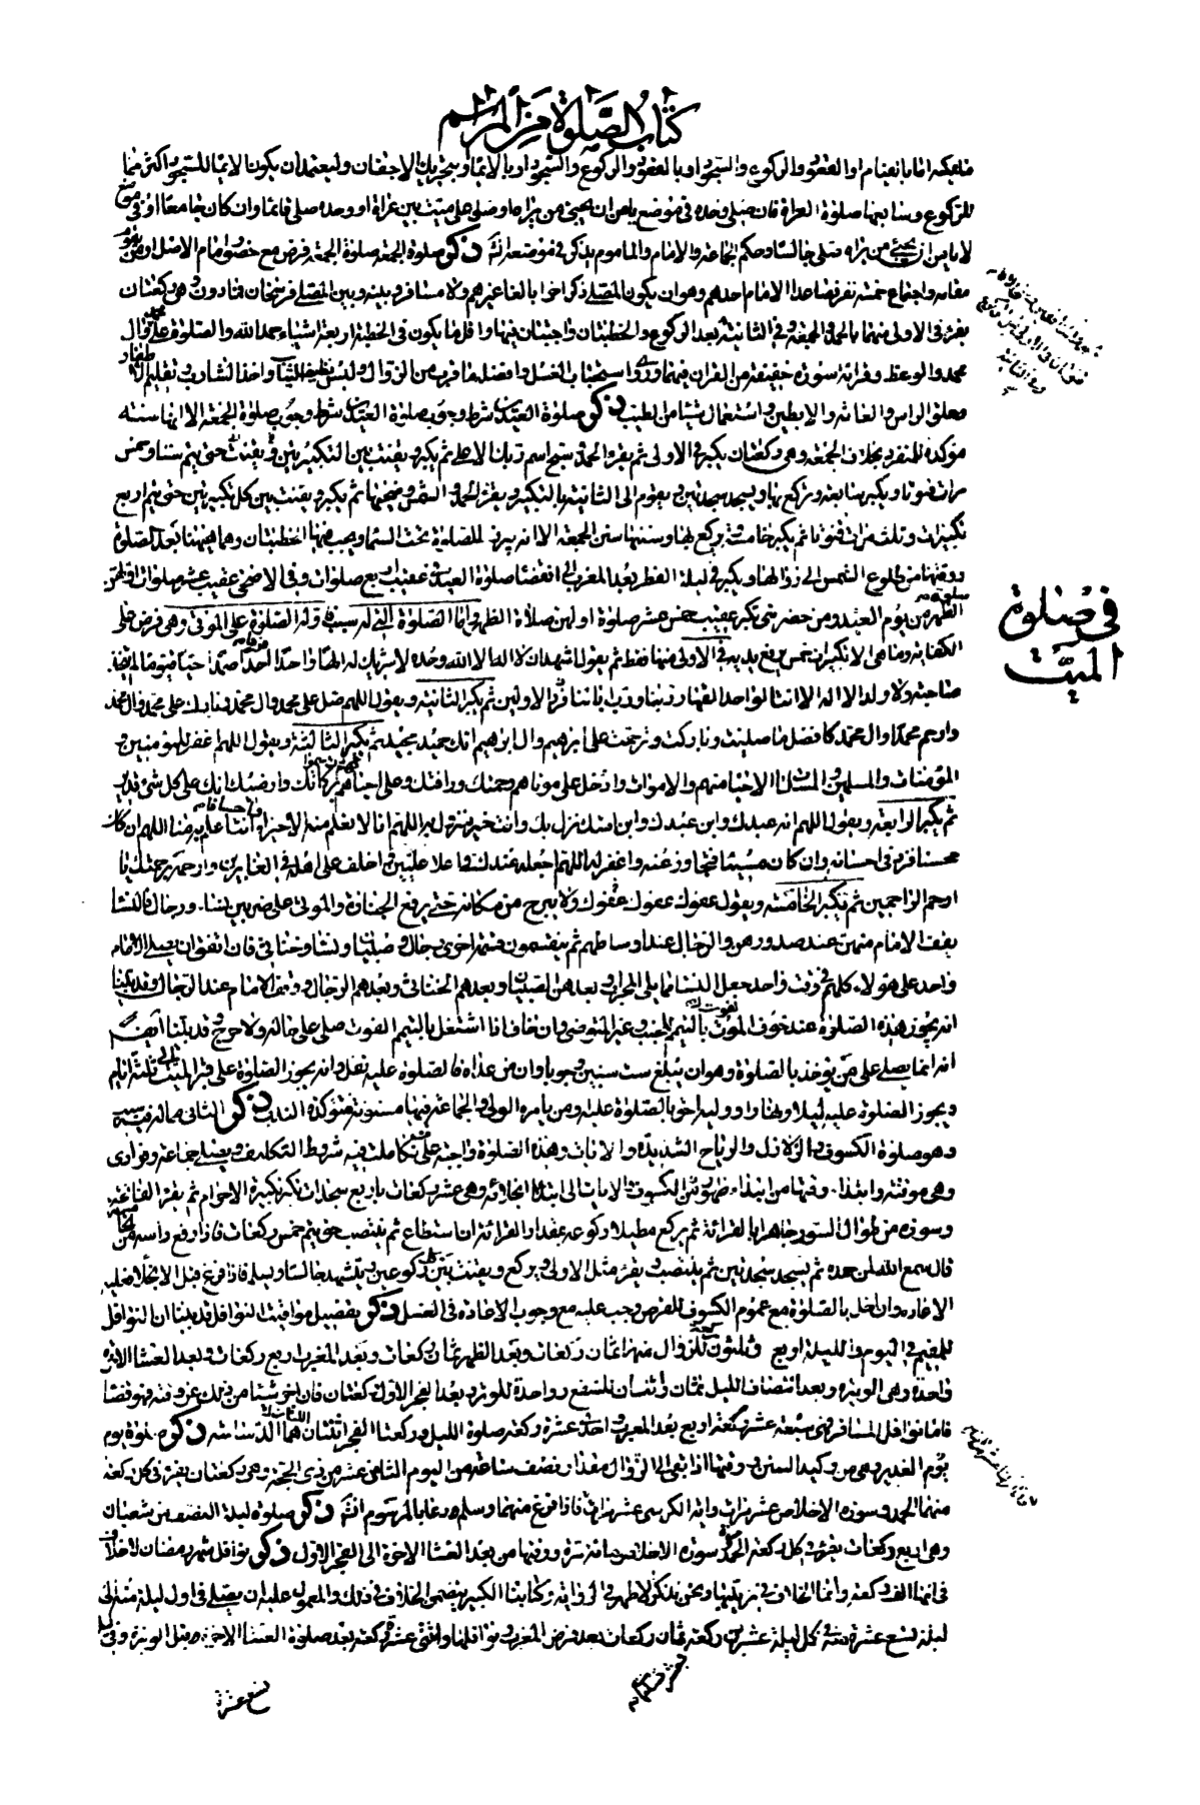 كتاب الصلوة من المراسم
للركوع ومنها صلوة العراة فان صلى وحده فى موضع يامن ان يجيئ من يراه وصلى على ميت بين عراة او وحده صلى قائما وان كان جامعا او فى موضع
لا يامن ان يجيئ من يراه صلى جالسا وحكم الجماعة والامام والماموم يذكر فى موضعه ذكر صلوة الجمعة صلوة الجمعة فرض مع حضور امام الاصل او من يقوم
مقامه واجتماع خمسة نفر فصاعدا الامام احدهم وهو ان يكون المصلى ذكرا حرا بالغا غير هم ولا مسافر وبينه وبين المصلى فرسخان فما دون وهى ركعتان
يقرء فى الاولى منهما بالحمد والجمعة وفى الثانية بعد الركوع والخطبتان واجبتان فيها واقل ما يكون فى الخطبة اربعة اشياء حمد الله والصلوة على محمد وال
محمد والوعظ وقرائة سورة خفيفة من القران فيهما الغسل وافضل ما قرب من الزوال ولبس نظيف الثياب واخذ الشارب وتقليم الاظفار
وحلق الراس والعانة والابطين واستعمال شيئا من الطيب ذكر صلوة العيدين شرط وجوب صلوة العيدين شرط وجوب صلوة الجمعة الا انها سنة
مؤكدة للمنفرد بخلاف الجمعة وهى ركعتان يكبر فى الاولى ثم يقرء الحمد وسبح اسم ربك الاعلى ثم يكبر ويقنت بين التكبيرتين ويقنت حتى يتم ستا وخمس
مرات قنوتا ويكبر سابعة ويركع بها ويسجد سجدتين ويقوم الى الثانية بالتكبير ويقرء الحمد والشمس وضحيها ثم يكبر ويقنت بين كل تكبيرتين حتى يتم اربع
تكبيرات وثلث مرات قنوتا ثم يكبر خامسة يركع بها وسننها سنن الجمعة الا انه للصلوة تحت السماء ويجب فيها الخطبتان وهما هيهنا بعد الصلوة
ووقتها من طلوع الشمس الى زوالها ويكبر فى ليلة الفطر بعد المغرب الى انقضا صلوة العيد فى عقيب اربع صلوات وفى الاضحى عقيب عشر صلوات اولهن
الظهر من يوم العيد ومن حضر منى يكبر عقيب خمس عشر صلوة اولهن صلاة الظهر واما الصلوة التى له سبب وله الصلوة على الموتى وهى فرض على
الكفاية ومنها خمس يرفع يديه فى الاولى منها فقط ثم يقول اشهد ان لا اله الا الله وحده لا شريك له الها واحدا احدا صمدا حيا قيوما لم يتخذ
صاحبة ولا ولدا لا اله الا انت الواحد القهار ربنا ورب ابائنا الاولين ثم يكبر الثانية ويقول اللهم صل على محمد وال محمد وبارك على محمد وال محمد
وارحم محمدا وال محمد كافضل ما صليت وباركت وترحمت على ابرهيم وال ابرهيم انك حميد مجيد ثم يكبر الثالثة ويقول اللهم اغفر للمؤمنين و
المؤمنات والمسلمين والمسلمات الاحياء منهم والاموات وادخل على موتاهم رحمتك ورافتك وعلى احيائهم بركاتك وارضك انك على كل شئ قدير
ثم يكبر الرابعة ويقول اللهم انه عبدك وابن عبدك وابن امتك نزل بك وانت خير منزول به اللهم انا لا نعلم منه الا خيرا وانت اعلم به منا اللهم ان كان
محسنا فزد فى احسانه وان كان مسيئا فتجاوز عنه واغفر له اللهم اجعله عندك فى اعلا عليين واخلف على اهله فى الغابرين وارحمه برحمتك يا
ارحم الراحمين ثم يكبر الخامسة ويقول عفوك عفوك عفوك ولا يبرح من مكانه حتى يرفع الجنازة والموتى على ضربين نسا ورجال فالنسا
يقف الامام منهن عند صدورهن والرجال عند اوساطهم ثم ينقسمون قسمة اخرى رجال وصبيان ونسا وخناثى فان اتفق ان يصلى الامام
واحد على هؤلاء كلهم فى وقت واحد جعل النسا مما يلى المحراب وبعدهن الصبيان وبعدهم الخناثى وبعدهم الرجال ووقف الامام عند الرجال وقد بينا
انه يجوز هذه الصلوة عند خوف الفوت بالتيمم للجنب وغير المتوضى وان خاف اذا اشتغل بالتيمم الفوت صلى على حاله ولا حرج وقد بينا ايضا
انه انما يصلى على من يؤخذ بالصلوة وهو ان يبلغ ست سنين وجوبا وان من عداه فالصلوة عليه نفل وانه يجوز الصلوة على قبر الميت ثلثة ايام
ويجوز الصلوة عليه ليلا ونهارا ووليه احق بالصلوة عليه ومن يامره الولى والجماعة فيها مسنونة مؤكدة الندب ذكر الثانى مما له سبب
وهو صلوة الكسوف والزلازل والرياح الشديدة والايات وهذه الصلوة واجبة على من تكاملت فيه شروط التكليف ويصلى جماعة وفرادى
وهى موقتة وابتدا وقتها من ابتداء ظهور الكسوف والايات الى ابتداء انجلائه وهى عشر ركعات باربع سجدات يكبر تكبيرة الاحرام ثم يقرء الفاتحة
وسورة من طوال السور جاهرا بالقرائة ثم يركع مطيلا ركوعه بمقدار القرائة ان استطاع ثم ينتصب حتى يتم خمس ركعات فاذا رفع راسه من الخامسة
قال سمع الله لمن حمده ثم يسجد سجدتين ثم ينتصب ويقرء مثل الاولى ويركع ويقنت بين كل ركوعين ويتشهد جالسا ويسلم فاذا فرغ قبل الانجلاء فعليه
الاعادة وان اخل بالصلوة مع عموم الكسوف للقرص وجب عليه مع وجوب الاعادة الغسل ذكر تفصيل مواقيت النوافل قد بينا ان النوافل
للمقيم فى اليوم والليلة اربع وثلثون للزوال منها ثمان ركعات وبعد الظهر ثمان ركعات وبعد المغرب اربع ركعات وبعد العشا الاخرة
واحدة وهى الوتيرة وبعد انتصاف الليل ثمان واثنتان للشفع وواحدة للوتر وبعد الفجر الاول ركعتان فان اخر شيئا من ذلك عن وقته فهو قضا
فاما نوافل المسافر فهى سبعة عشر ركعة اربع بعد المغرب واحدى عشرة ركعة صلوة الليل وركعتا الفجر اثنتان هما الدساسة ذكر صلوة يوم
يوم الغدير وهى من وكيد السنن ووقتها اذا بقى الى الزوال مقدار نصف ساعة من اليوم الثامن عشر من ذى الحجة وهى ركعتان يقرء فى كل ركعة
منهما الحمد وسورة الاخلاص عشر مرات واية الكرسى عشر مرات فاذا فرغ منهما وسلم دعا بالمرسوم ذكر صلوة ليلة النصف من شعبان
وهى اربع ركعات يقرء فى كل ركعة الحمد مرة سورة الاخلاص مائة مرة ووقتها من بعد العشا الاخرة الى الفجر الاول ذكر نوافل شهر رمضان لا خلاف
فى انها الف ركعة وانما الخلاف فى ترتيبها ونحن نذكر الاظهر فى الرواية وكتابنا الكبير يتضمن الخلاف فى ذلك والمعمول عليه ان يصلى فى اول ليلة منه الى
ليلة تسع عشرة منه فى كل ليلة عشرين ركعة ثمان ركعات بعد فرض المغرب ونوافلها واثنتى عشر ركعة بعد صلوة العشا الاخرة قبل الوتيرة وفى ليلة
تسع عشرة
فى صلوة
الميت